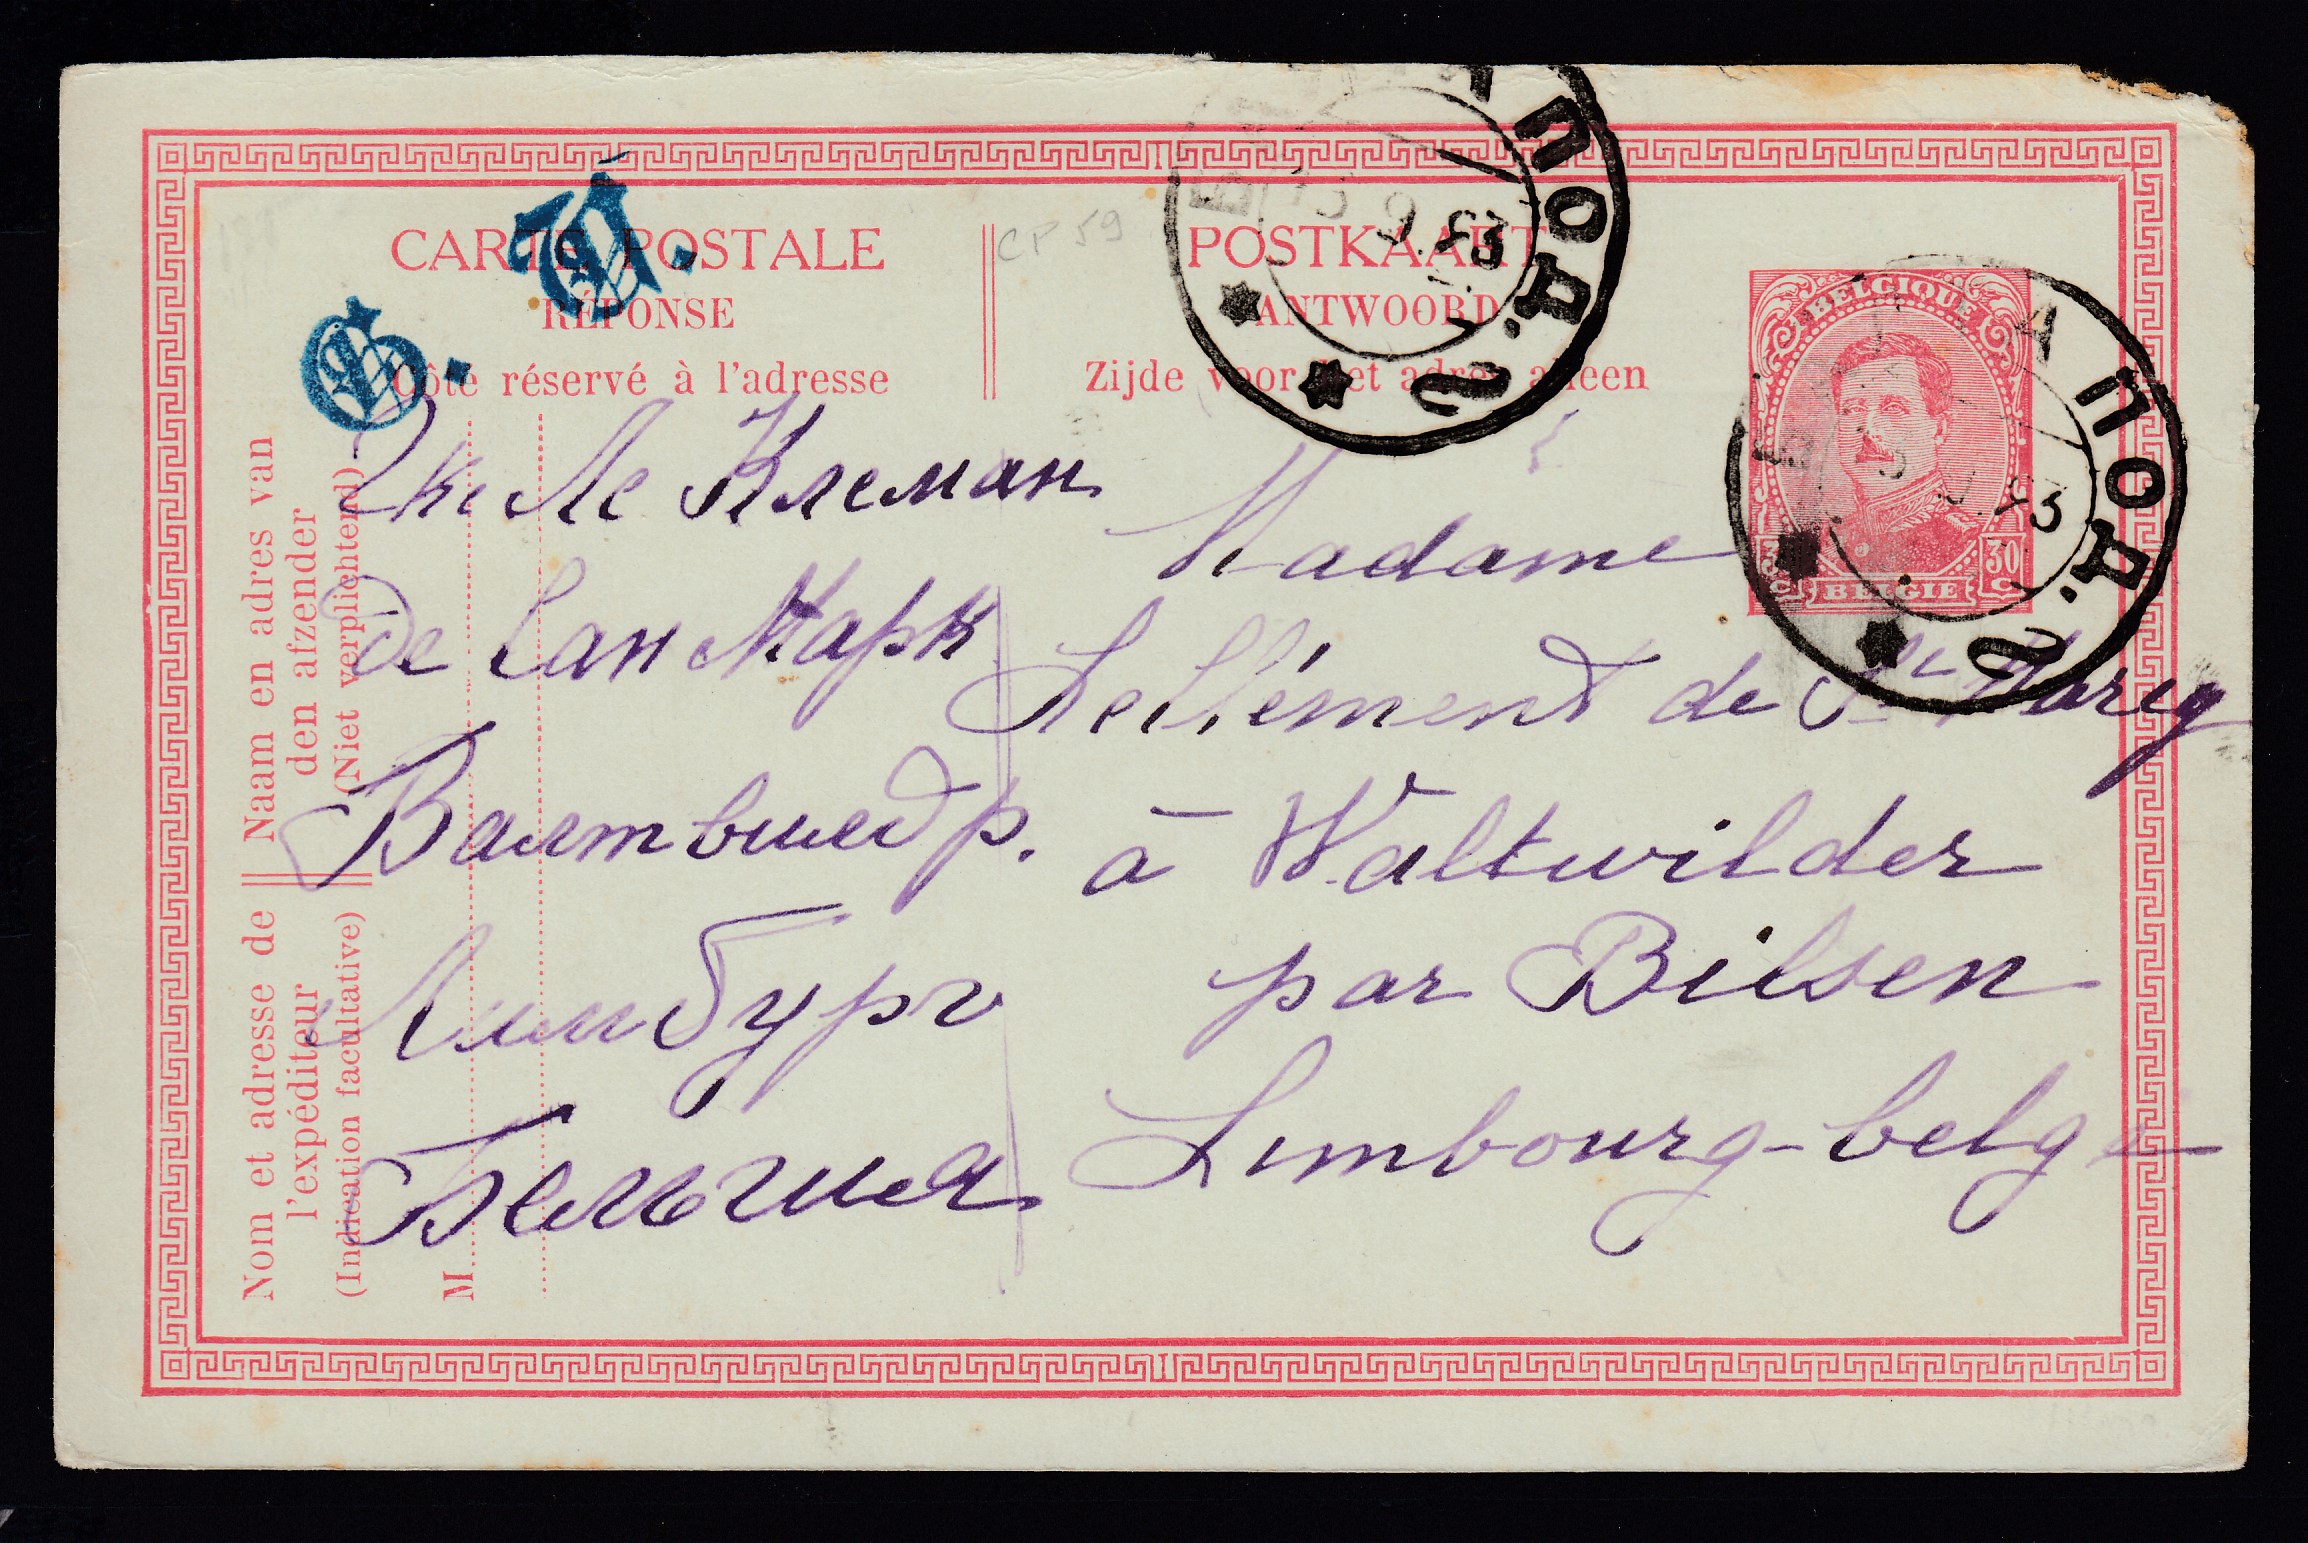 CARTE POSTALE
RÉPONSE
Côté réservé à l'adresse
POSTKAART
ANTWOORD
Zijde voor het adres alleen
CP 59
G. V.
BELGIQUE
30
BELGIE
ПОД. 2
Naam en adres van
den afzender
(Niet verplichtend)
Nom et adresse de
l'expéditeur
(Indication facultative)
M
Ле Клеман
де Сан Марк
Валтвилдр.
Лимбург
Бельгиея
Madame
Le Clément de St Marcq
à Waltwilder
par Bilsen
Limbourg-belge